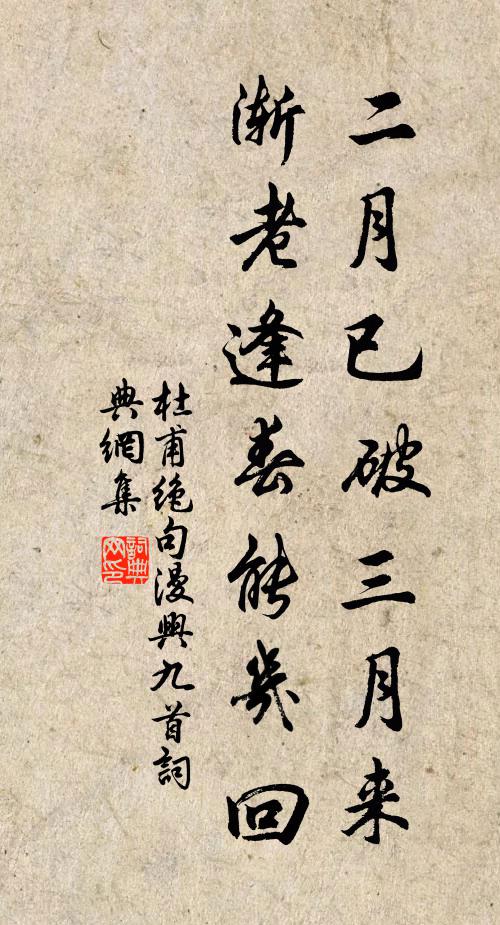 二月已破三月来
渐老逢春能几回
杜甫絶句漫興九首詞
典網集
詞典
网印